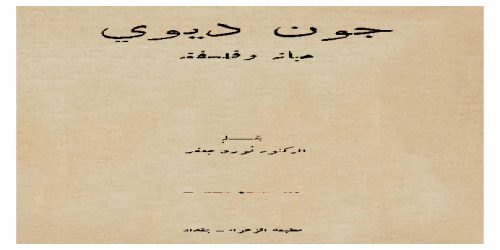 جون ديوي
حياته وفلسفته
بقلم
الدكتور نوري جعفر
مطبعة الزهراء - بغداد